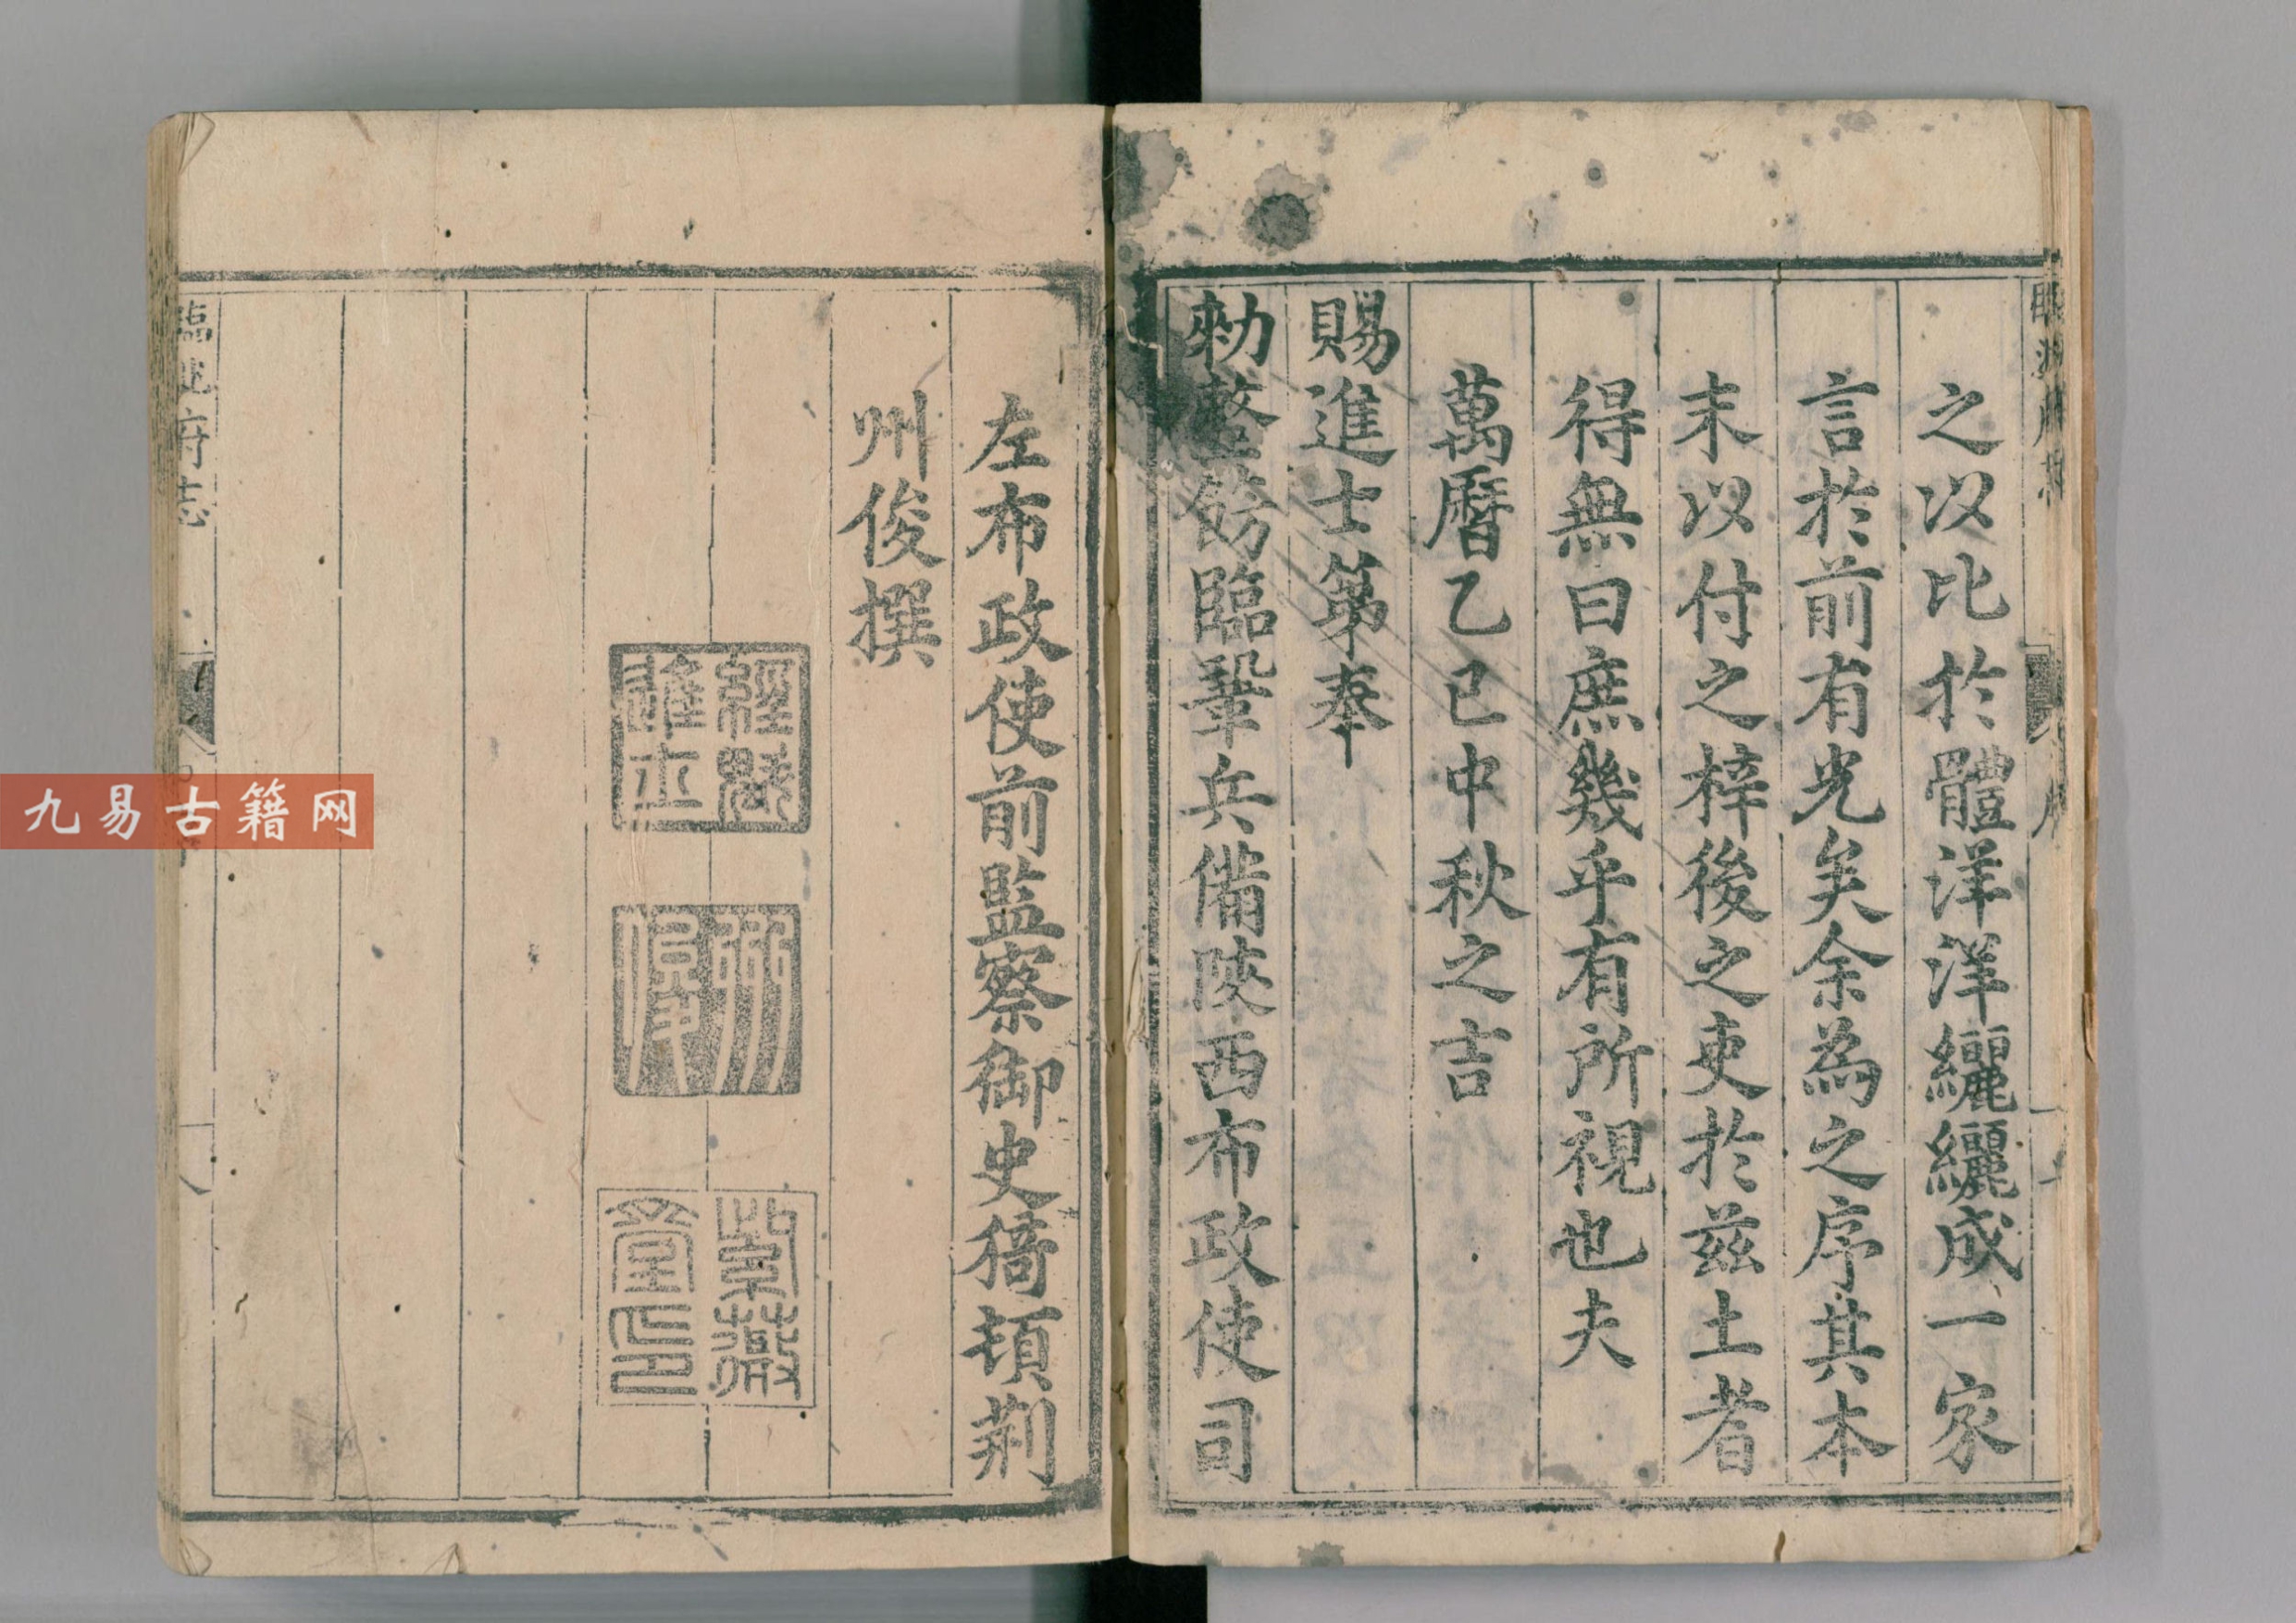 之以比於體洋洋纚纚成一家
言於前有光矣余為之序其本
末以付之梓後之吏於茲土者
得無曰庶幾乎有所視也夫
萬曆乙巳中秋之吉
賜進士第奉
勅整飭臨鞏兵備陝西布政使司
左布政使前監察御史猗頓荊
州俊撰
經眼
荊州俊
紫薇
堂印
臨洮府志
九易古籍网